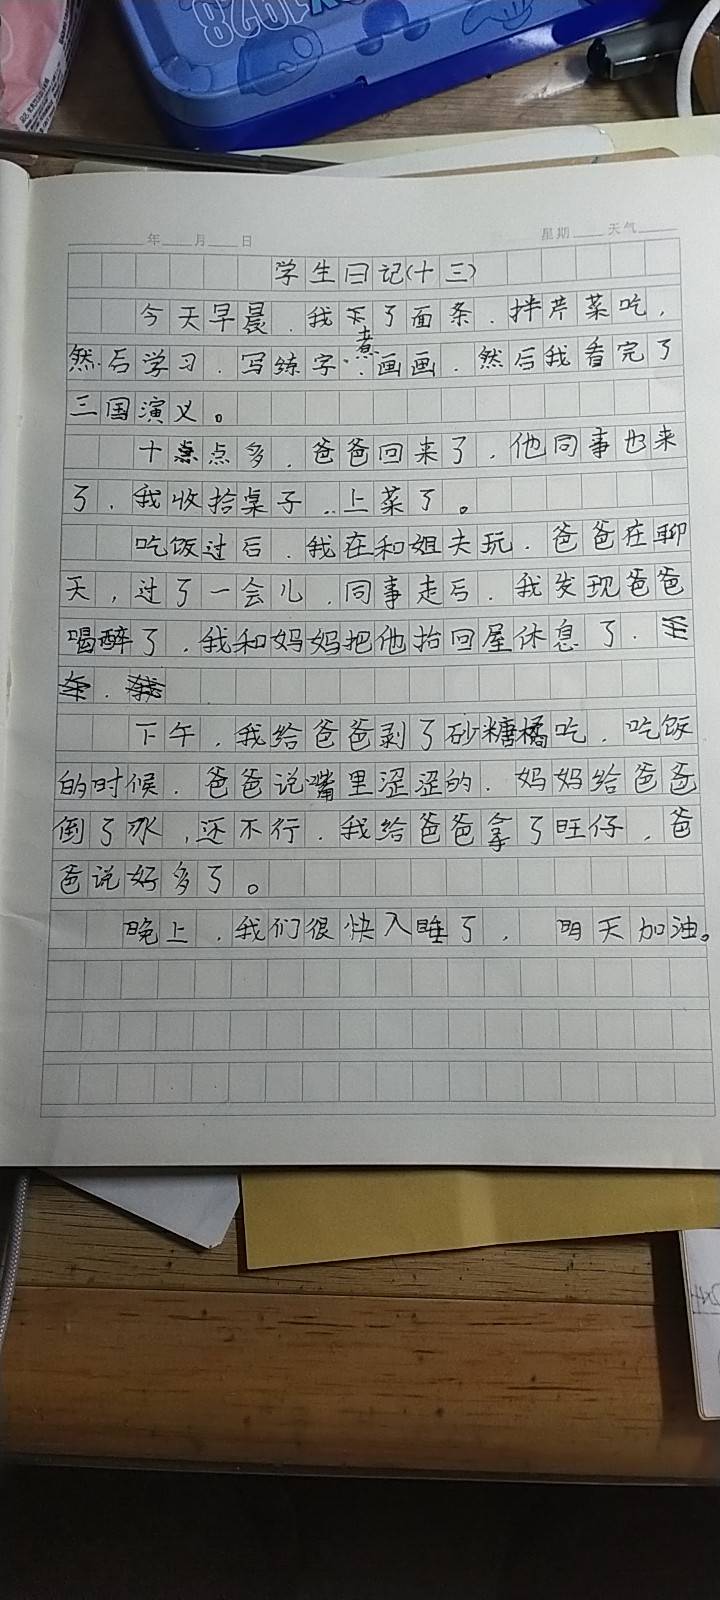 8261
年 月 日 星期 天气
学生日记(十三)
今天早晨，我煮了面条，拌芹菜吃，
然后学习，写练字，画画，然后我看完了
三国演义。
十点多，爸爸回来了，他同事也来
了，我收拾桌子，上菜了。
吃饭过后，我在和姐夫玩，爸爸在聊
天，过了一会儿，同事走后，我发现爸爸
喝醉了，我和妈妈把他抬回屋休息了，
下午，我给爸爸剥了砂糖橘吃，吃饭
的时候，爸爸说嘴里涩涩的，妈妈给爸爸
倒了水，还不行，我给爸爸拿了旺仔，爸
爸说好多了。
晚上，我们很快入睡了， 明天加油。